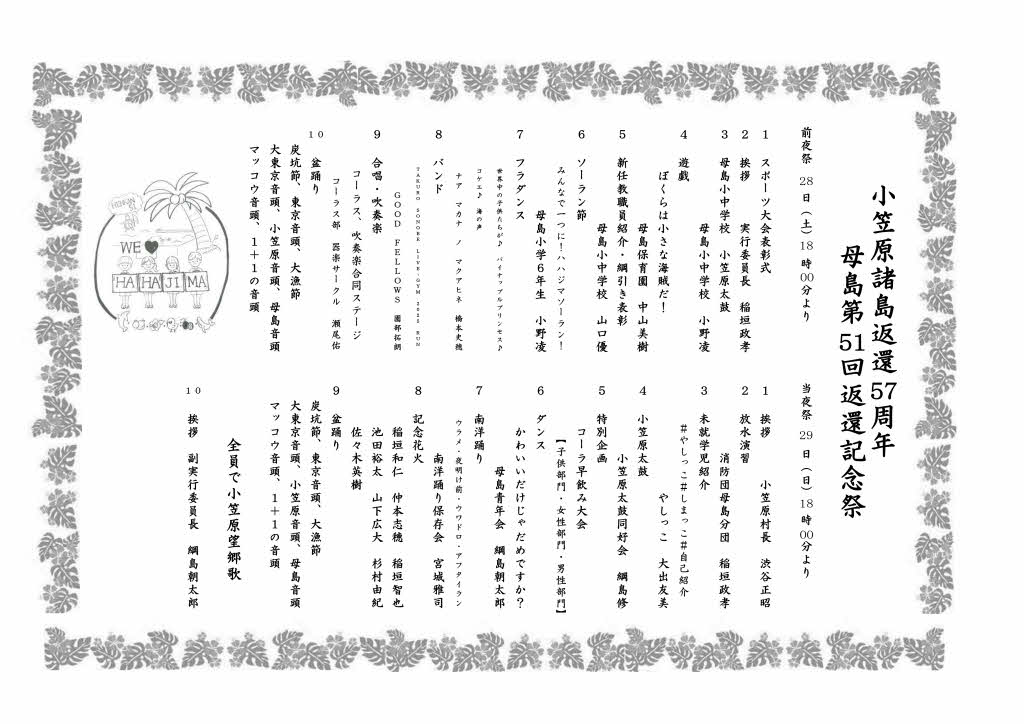 小笠原諸島返還57周年
母島第51回返還記念祭
前夜祭 28日(土)18時00分より
1 スポーツ大会表彰式
2 挨拶 実行委員長 稲垣政孝
3 母島小中学校 小笠原太鼓
母島小中学校 小野凌
4 遊戯
ぼくらは小さな海賊だ!
母島保育園 中山美樹
5 新任教職員紹介・綱引き表彰
母島小中学校 山口優
6 ソーラン節
みんなで一つに!ハハジマソーラン!
母島小学6年生 小野凌
7 フラダンス
世界中の子供たちが♪ パイナップルプリンセス♪
コケエ♪ 海の声
ナア マカナ ノ マクアヒネ 橋本史穂
8 バンド
TAKURO SONOBE LIVE-GYM 2025 RUN
GOOD FELLOWS 園部拓朗
9 合唱・吹奏楽
コーラス、吹奏楽合同ステージ
コーラス部 器楽サークル 瀬尾佑
10 盆踊り
炭坑節、東京音頭、大漁節
大東京音頭、小笠原音頭、母島音頭
マッコウ音頭、1+1の音頭
WE
HAHAJIMA
当夜祭 29日(日)18時00分より
1 挨拶 小笠原村長 渋谷正昭
2 放水演習
消防団母島分団 稲垣政孝
3 未就学児紹介
#やしっこ#しまっこ#自己紹介
やしっこ 大出友美
4 小笠原太鼓
小笠原太鼓同好会 綱島修
5 特別企画
コーラ早飲み大会
【子供部門・女性部門・男性部門】
6 ダンス
かわいいだけじゃだめですか?
母島青年会 綱島朝太郎
7 南洋踊り
ウラメ・夜明け前・ウワドロ・アフタイラン
南洋踊り保存会 宮城雅司
8 記念花火
稲垣和仁 仲本志穂 稲垣智也
池田裕太 山下広大 杉村由紀
佐々木英樹
9 盆踊り
炭坑節、東京音頭、大漁節
大東京音頭、小笠原音頭、母島音頭
マッコウ音頭、1+1の音頭
全員で小笠原望郷歌
10 挨拶 副実行委員長 綱島朝太郎